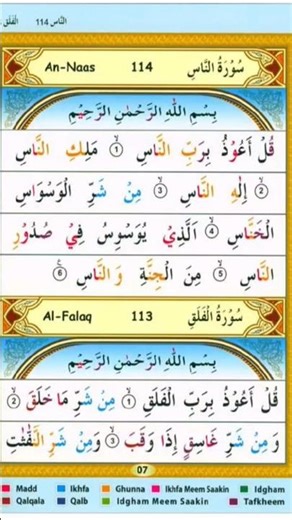 الناس 114 الفلق
An-Naas 114 سُوْرَةُ النَّاسِ
بِسْمِ اللّٰهِ الرَّحْمٰنِ الرَّحِيْمِ
قُلْ اَعُوْذُ بِرَبِّ النَّاسِ ۙ۝۱ مَلِكِ النَّاسِ
ۙ۝۲ اِلٰهِ النَّاسِ ۙ۝۳ مِنْ شَرِّ الْوَسْوَاسِ
الْخَنَّاسِ ۙ۝۴ الَّذِيْ يُوَسْوِسُ فِيْ صُدُوْرِ
النَّاسِ ۙ۝۵ مِنَ الْجِنَّةِ وَ النَّاسِ ۝۶
Al-Falaq 113 سُوْرَةُ الْفَلَقِ
بِسْمِ اللّٰهِ الرَّحْمٰنِ الرَّحِيْمِ
قُلْ اَعُوْذُ بِرَبِّ الْفَلَقِ ۙ۝۱ مِنْ شَرِّ مَا خَلَقَ ۙ۝۲
وَ مِنْ شَرِّ غَاسِقٍ اِذَا وَقَبَ ۙ۝۳ وَمِنْ شَرِّ النَّفّٰثٰتِ
07
Madd Ikhfa Ghunna Ikhfa Meem Saakin Idgham
Qalqala Qalb Idgham Meem Saakin Tafkheem